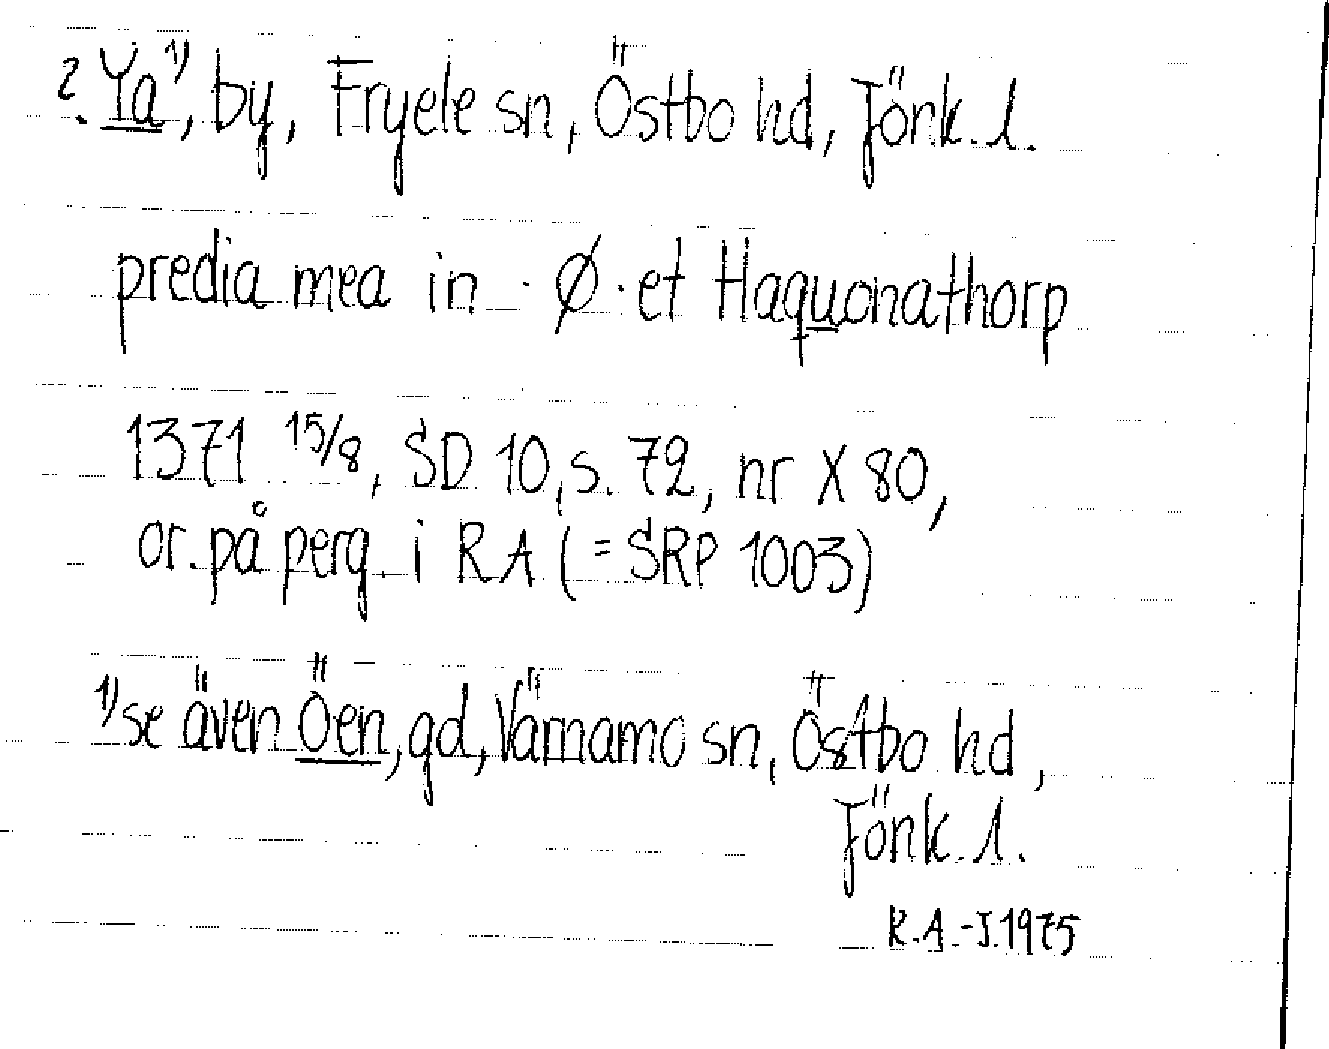 ?. Ya¹⁾, by, Fryele sn, Östbo hd, Jönk. l.
predia mea in · Ø · et Haquonathorp
1371 15/8, SD 10, s. 72, nr X 80,
or. på perg. i RA (= SRP 1003)
¹⁾ se även Öen, gd, Värnamo sn, Östbo hd,
Jönk. l.
R.A.-J. 1975